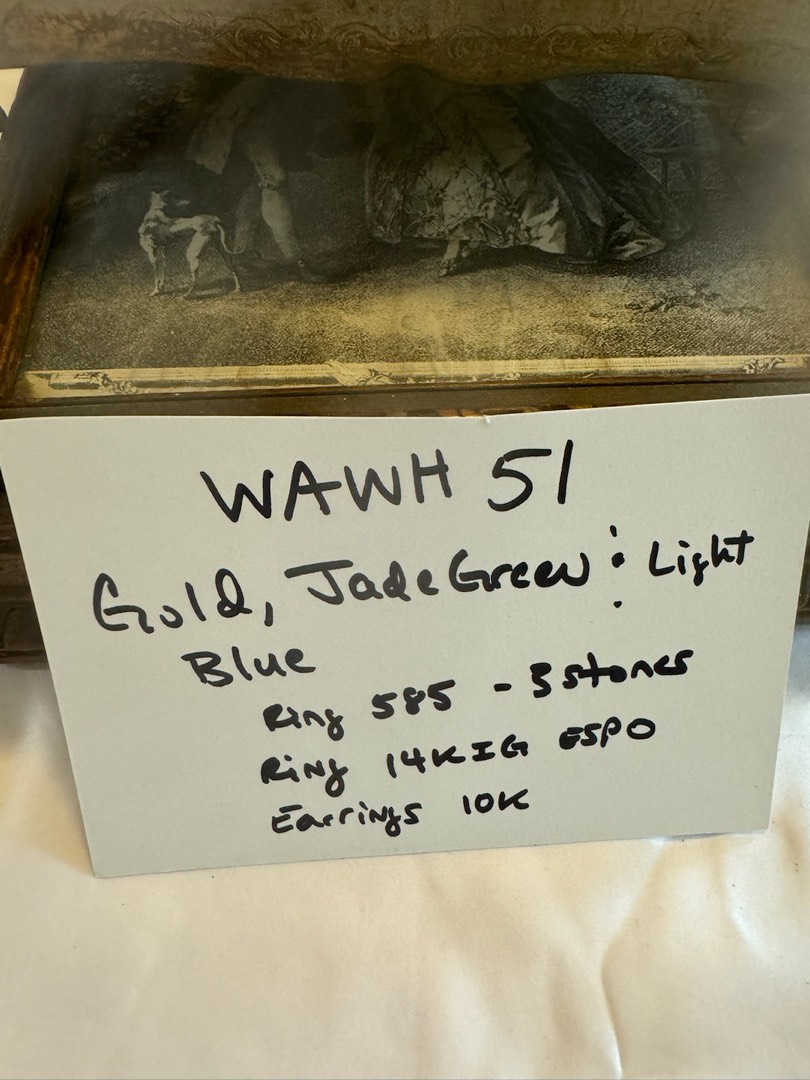 WAWH 51
Gold, Jade Green : Light
Blue
Ring 585 - 3 stones
Ring 14KIG ESPO
Earrings 10K